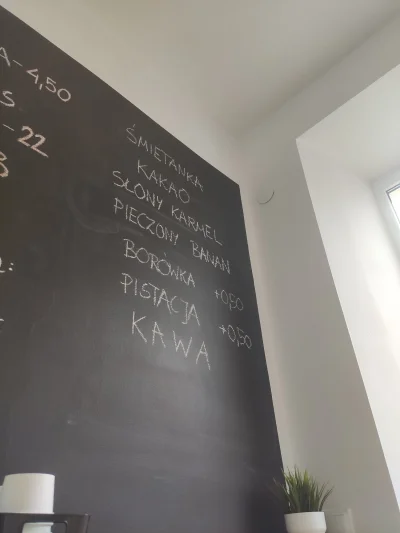 A-4,50
S
-22
B
ŚMIETANKA
KAKAO
SŁONY KARMEL
PIECZONY BANAN
BORÓWKA +0,50
PISTACJA +0,50
KAWA